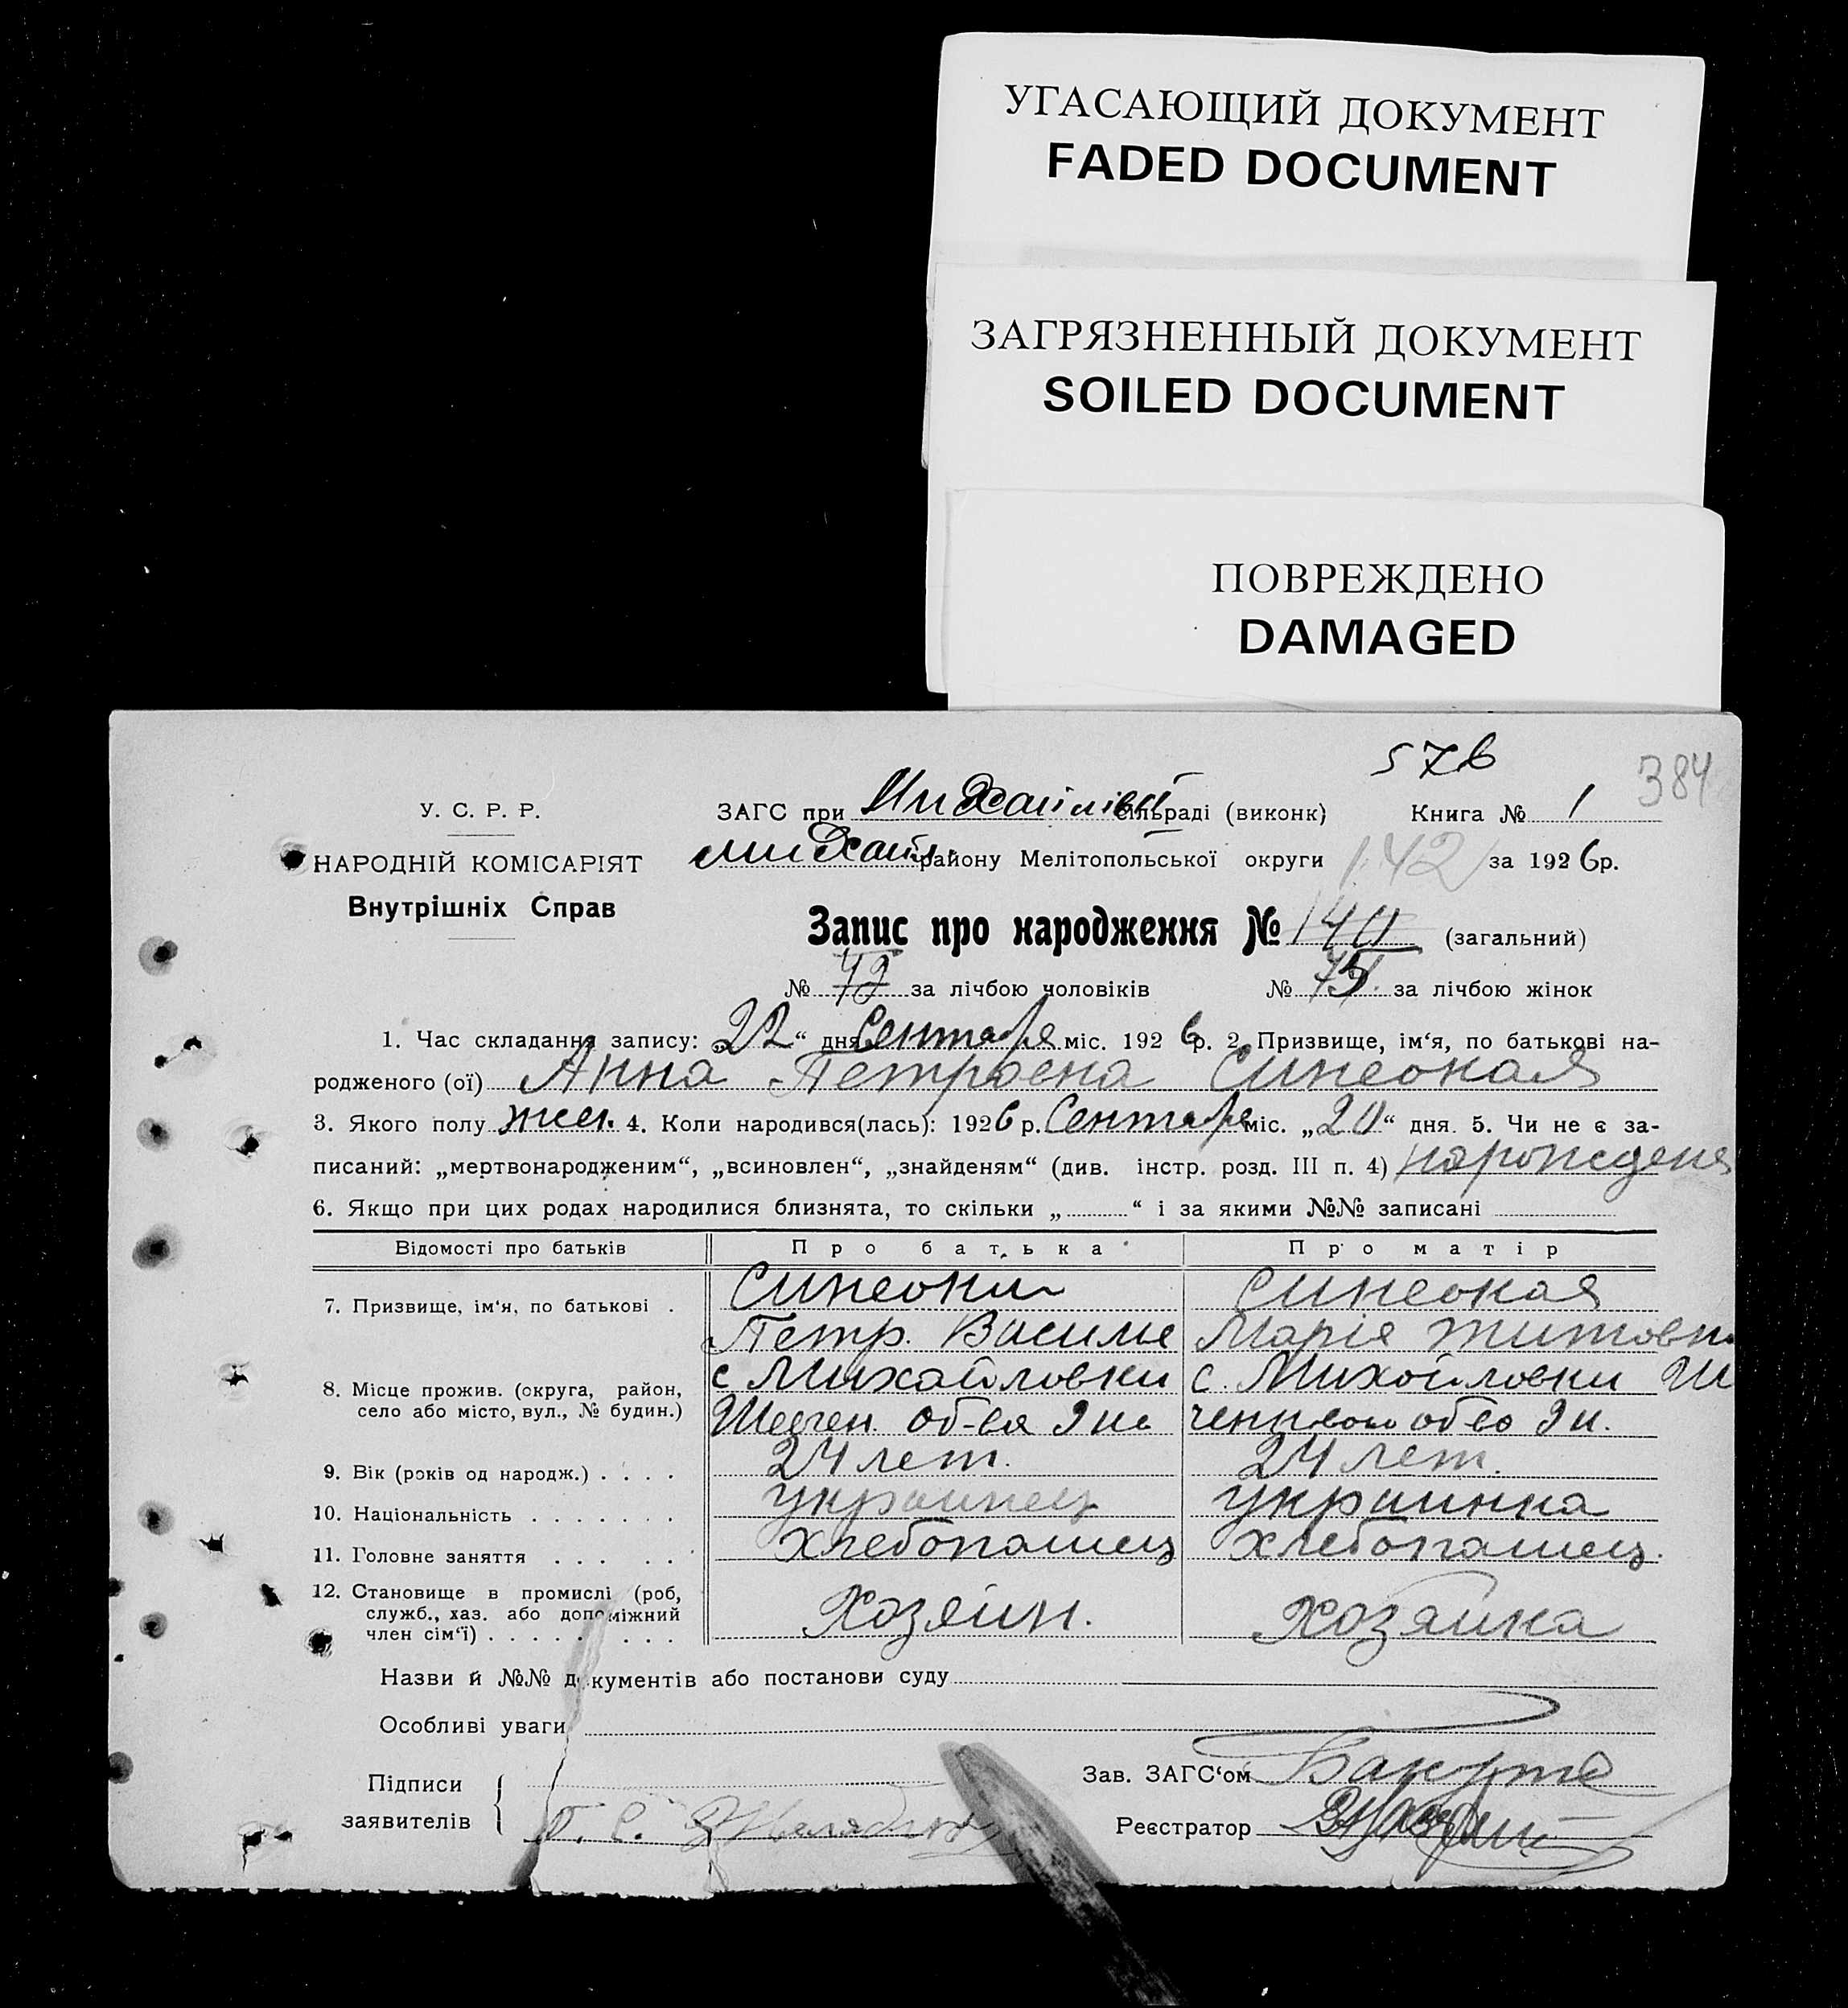 УГАСАЮЩИЙ ДОКУМЕНТ
FADED DOCUMENT
ЗАГРЯЗНЕННЫЙ ДОКУМЕНТ
SOILED DOCUMENT
ПОВРЕЖДЕНО
DAMAGED
576
384
У. С. Р. Р.
НАРОДНІЙ КОМІСАРІЯТ
Внутрішніх Справ
ЗАГС при Михайлівці сільраді (виконк) Книга № 1
Михайл. району Мелітопольської округи 142 за 1926 р.
Запис про народження № 140 (загальний)
№ 72 за лічбою чоловіків № 75 за лічбою жінок
1. Час складання запису: „22“ дня Сентября міс. 1926 р. 2. Призвище, ім‘я, по батькові на-
родженого (ої) Анна Петровна Синеокая
3. Якого полу жен. 4. Коли народився(лась): 1926 р. Сентября міс. „20“ дня. 5. Чи не є за-
писаний: „мертвонародженим“, „всиновлен“, „знайденям“ (див. інстр. розд. III п. 4) нарождена
6. Якщо при цих родах народилися близнята, то скільки „ “ і за якими №№ записані
Відомості про батьків Про батька Про матір
7. Призвище, ім‘я, по батькові . Синеокий Синеокая
Петр. Василье Марія Титовн
8. Місце прожив. (округа, район, село або місто, вул., № будин.) с Михайловки с. Михайловки Ш
Шевчен. об-ва ченковою об-во
9. Вік (років од народж.) . . . . 24 лет. 24 лет.
10. Національність . . . . . . . украинец украинка
11. Головне заняття . . . . . . хлебопашец хлебопашец.
12. Становище в промислі (роб, служб., хаз. або допоміжний член сім‘ї) . . . . . . . . Хозяин. Хозяика
Назви й №№ документів або постанови суду
Особливі уваги
Підписи заявителів
Зав. ЗАГС‘ом
Реєстратор